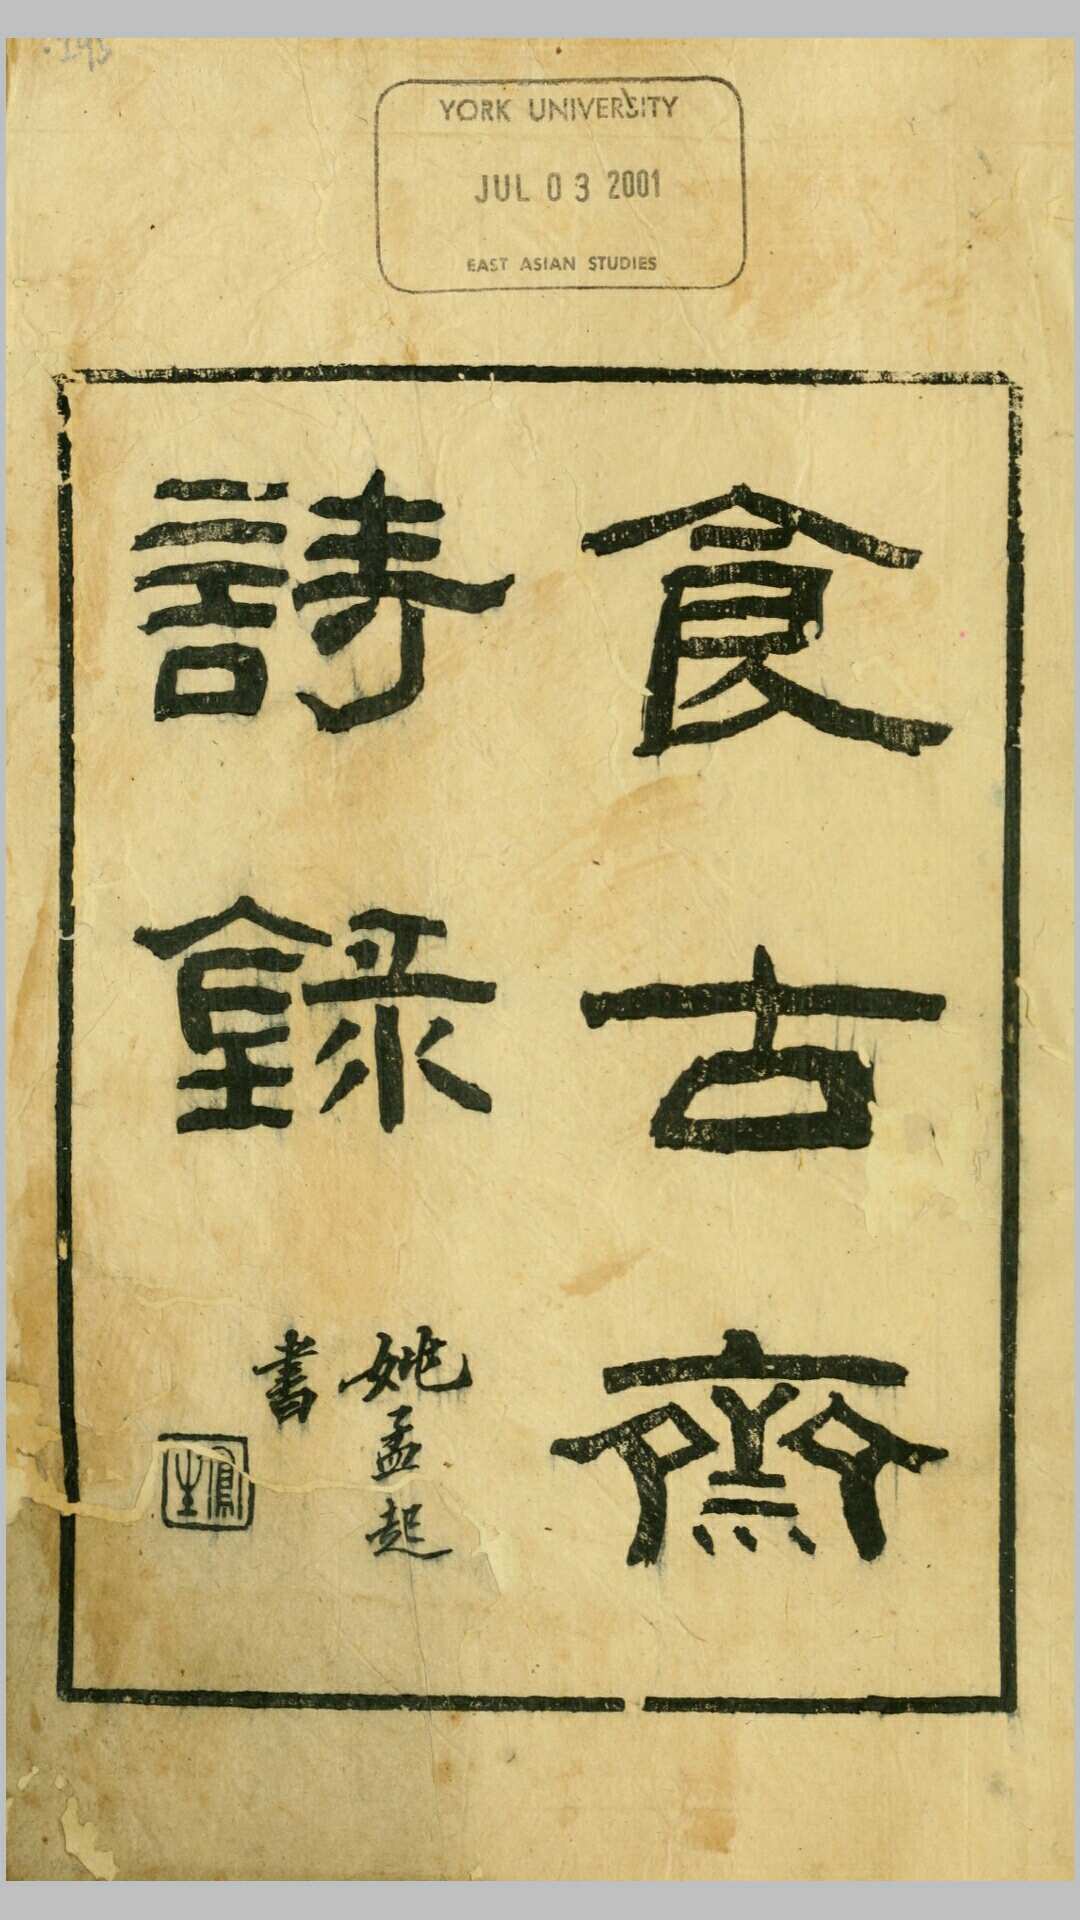 YORK UNIVERSITY
JUL 03 2001
EAST ASIAN STUDIES
食古齋
詩錄
姚孟起
書
鳳生